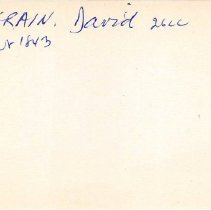 CRAIN. David 26cc
1843